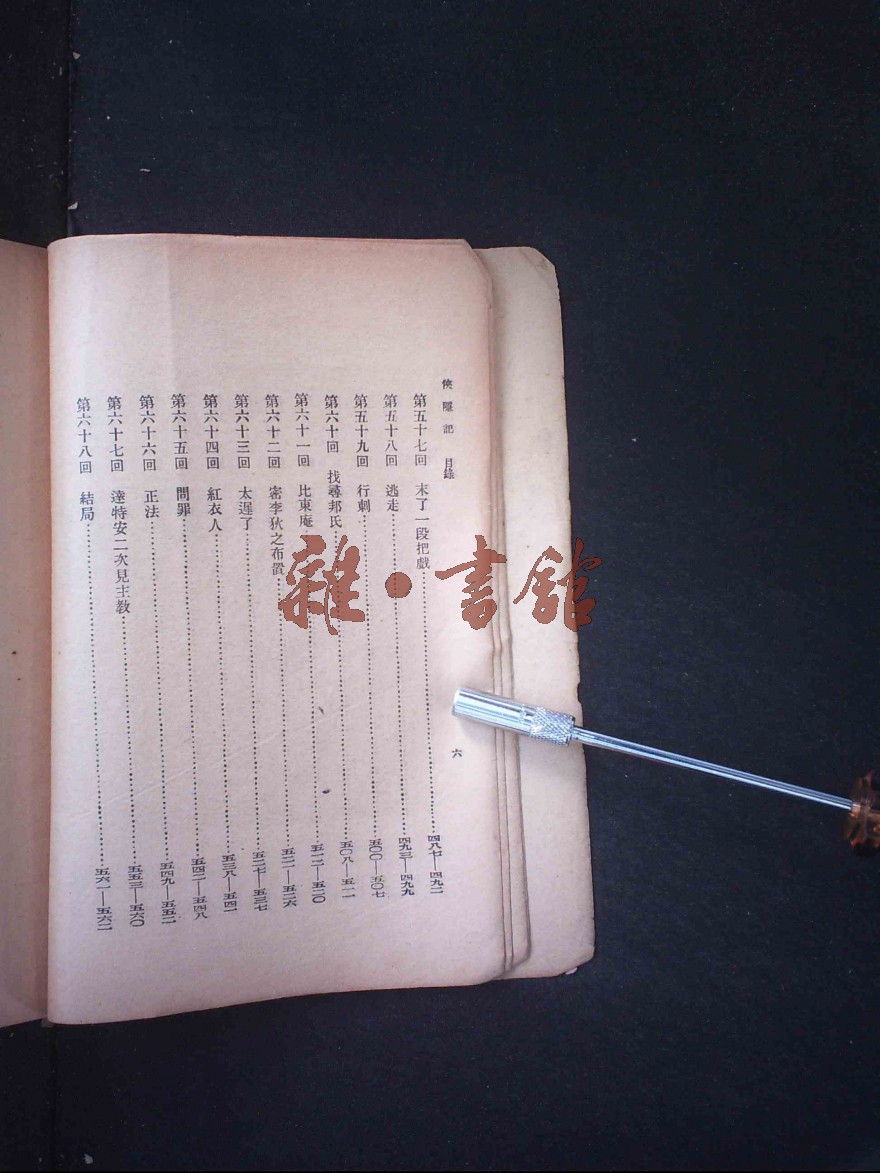 俠隱記 目錄
六
第五十七回 末了一段把戲 四八七—四九二
第五十八回 逃走 四九三—四九九
第五十九回 行刺 五〇〇—五〇七
第六十回 找尋邦氏 五〇八—五一一
第六十一回 比東庵 五一二—五二〇
第六十二回 密李狄之布置 五二一—五二六
第六十三回 太遲了 五二七—五三七
第六十四回 紅衣人 五三八—五四一
第六十五回 問罪 五四二—五四八
第六十六回 正法 五四九—五五二
第六十七回 達特安二次見主教 五五三—五六〇
第六十八回 結局 五六一—五六二
雜·書館